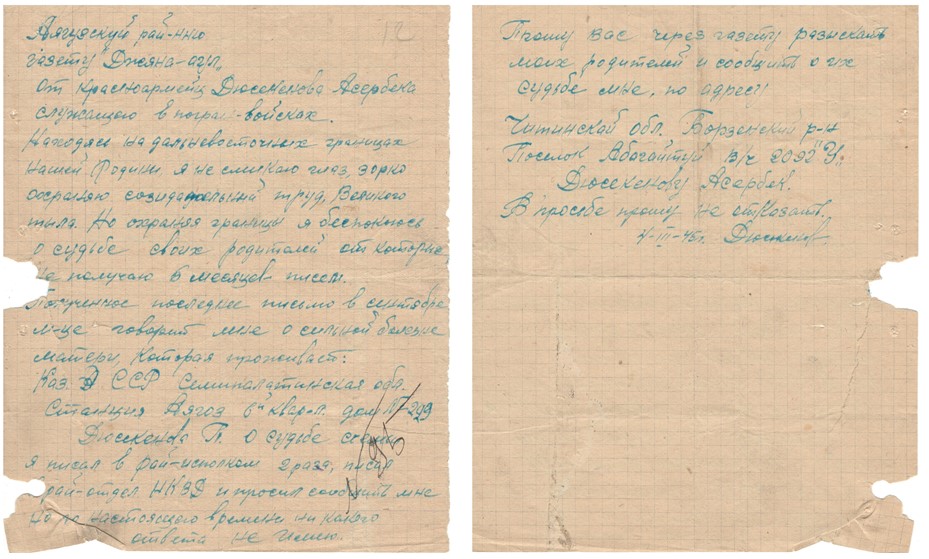 12
Аягузскую рай-нию
газету Джяна-аул.
От Красноармейц Дюсекенова Асербека
служащего в погран-войсках.
Находясь на дальневосточных границах
нашей Родины я не смыкаю глаз, зорко
охраняю созидательный труд, Великого
тыла. Но охраняя границы я беспокоюсь
о судьбе своих родителей от которых
не получаю 6 месяцев писем.
Полученное последнее письмо в сентябре
м-це говорит мне о сильной болезне
матери, которая проживает:
Каз. ССР Семипалатинская обл.
Станция Аягоз 6й квар-л. дом № 249
Дюсекенова П. О судьбе
я писал в рай-исполком 2 раза, писал
рай-отдел НКВД и просил сообщить мне
но до настоящего времени ни какого
ответа не имею.
Прошу вас через газету разыскать
моих родителей и сообщить о их
судьбе мне, по адресу
Читинской обл. Борзенский р-н
Поселок Абагайтуй в/ч 2092 "У"
Дюсекенову Асербек.
В просьбе прошу не отказать.
4-III-45г. Дюсекенов